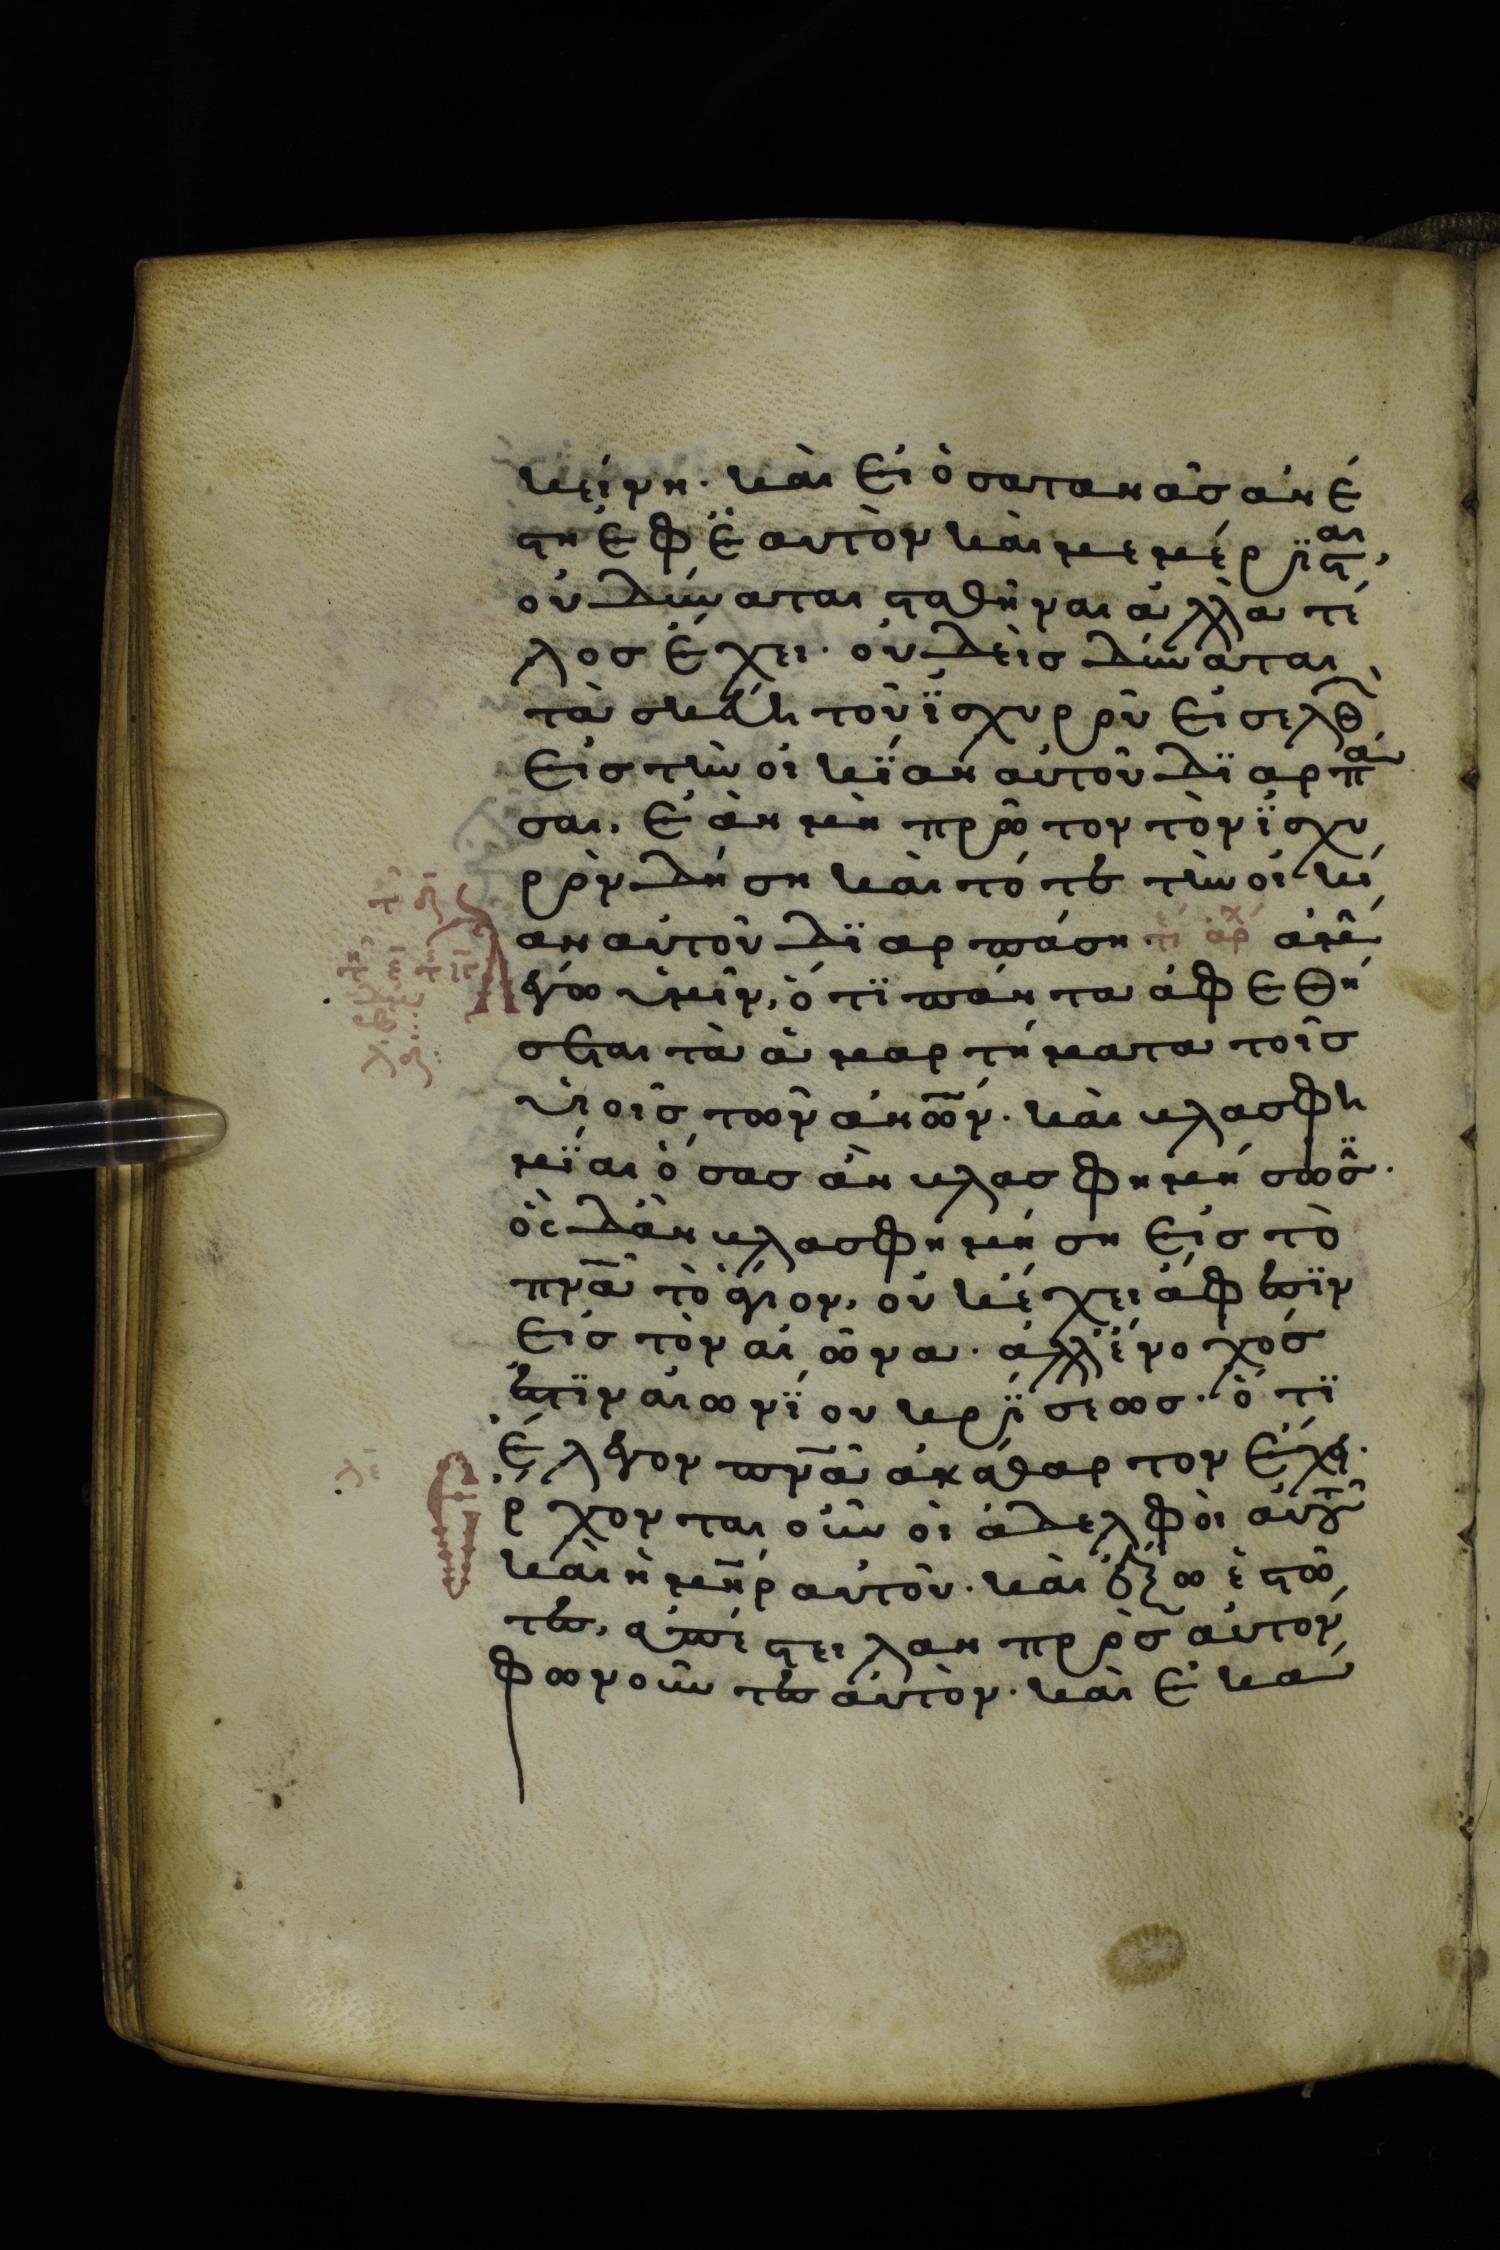 κείνη· καὶ εἰ ὁ σατανᾶς ἀνέ
στη ἐφ ἑαυτὸν καὶ μεμέρϊσται,
οὐ δύναται σταθῆναι ἀλλα τέ
λος ἔχει· οὐδεὶς δύναται
τὰ σκεύη τοῦ ἰσχυροῦ εἰσελθ
εἰς τὴν οἰκΐαν αὐτοῦ δϊαρπά
σαι, ἐὰν μὴ πρῶτον τὸν ἰσχυ
ρὸν δήσῃ καὶ τότε τὴν οἰκί
αν αὐτοῦ δϊαρπάσῃ· τέ ἀρχ ἀμὴ
λέγω ὑμῖν, ὅτϊ πάντα ἀφεθή
σεται τὰ ἁμαρτήματα τοῖς
υἱοῖς τῶν ἀνων· καὶ βλασφη
μΐαι ὅσας ἂν βλασφημήσωσ·
ὃς δἂν βλασφημήση εἰς τὸ
πνα τὸ ἅγιον, οὐκ ἔχει ἄφεσϊν
εἰς τὸν αἰῶνα· ἀλλ ἔνοχός
ἐστϊν αἰωνΐου κρΐσεως· ὅτϊ
ἔλεγον πνα ἀκάθαρτον ἔχει·
Ερχονται οὖν οἱ ἀδελφοὶ αὐτοῦ
καὶ ἡ μηρ αὐτοῦ· καὶ ἔξω ἑστῶ
τες, ἀπέστειλαν πρὸς αὐτὸν
φωνοῦντες αὐτὸν· καὶ ἐκα